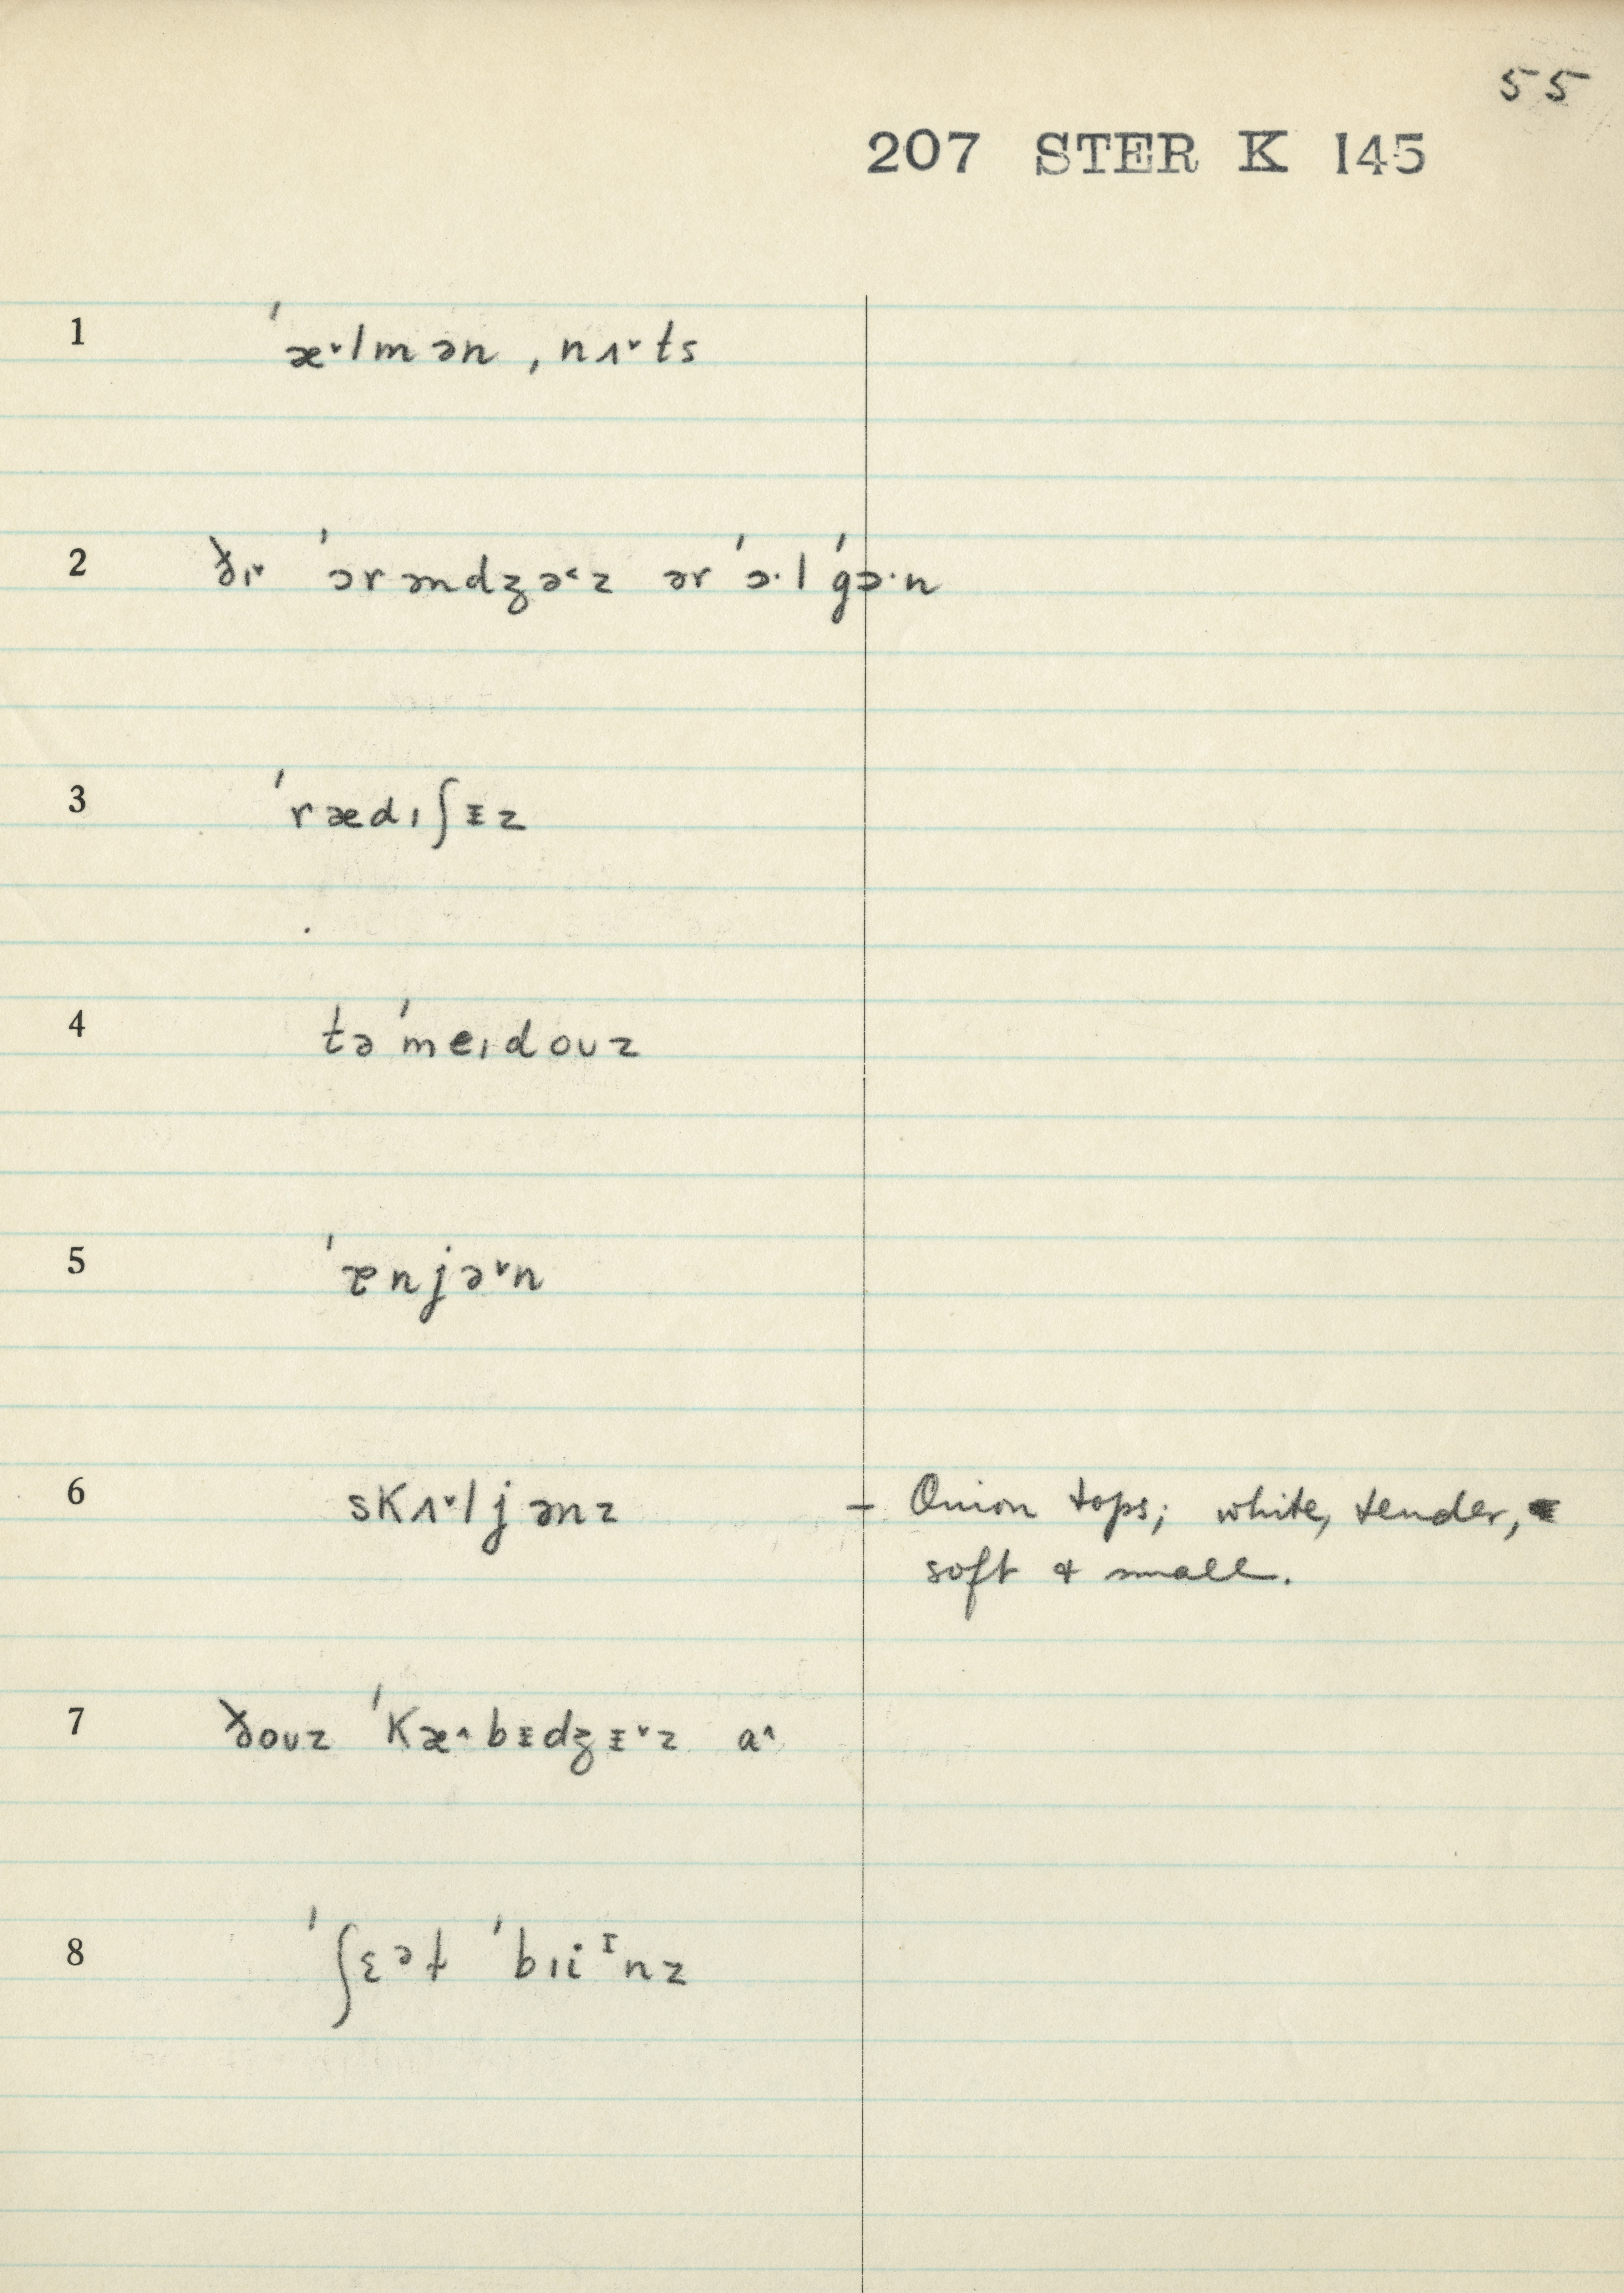 55
207 STER K 145
1 ˈæ˅lmən , nʌ˅ts
2 ðɪ˅ ˈɔrəndʒə˂z ər ˈɔ·l ˈgɔ·n
3 ˈrædɪʃᵻz
4 təˈmeɪdoʊz
5 ˈɐnjə˅n
6 skʌ˅ljənz – Onion tops; white, tender,
soft & small.
7 ðoʊz ˈkæ˄bᵻdʒᵻ˅z a˄
8 ˈʃɛᵊt ˈbɪiᶦnz